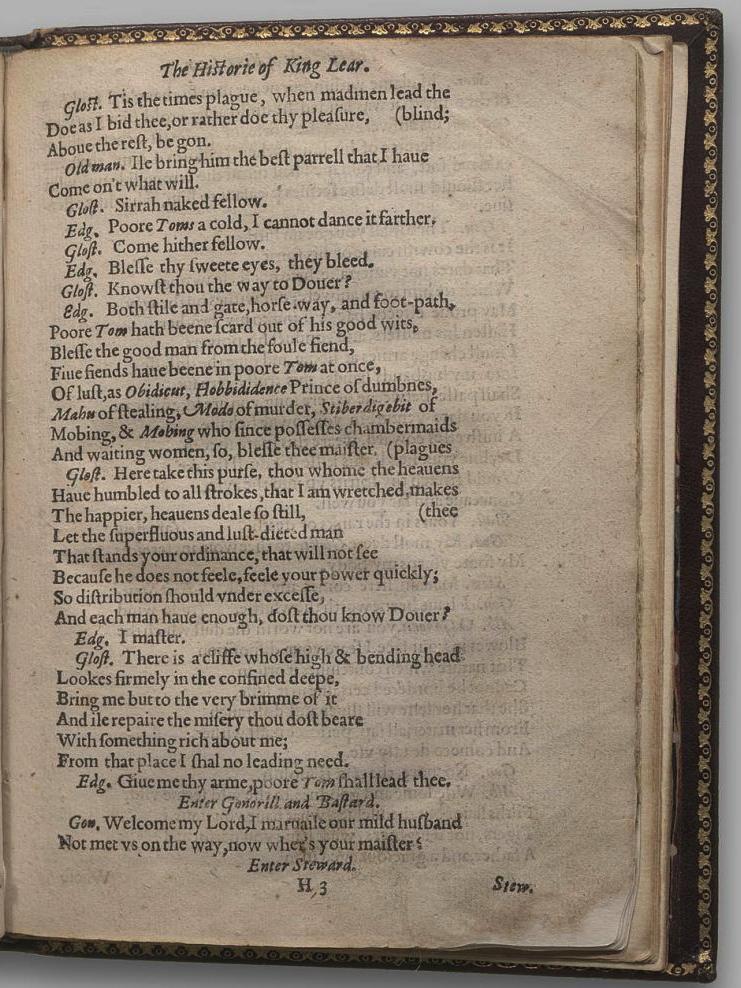 The Historie of King Lear.
Glost. Tis the times plague, when madmen lead the
Doe as I bid thee, or rather doe thy pleaſure, (blind;
Aboue the reſt, be gon.
Oldman. Ile bring him the beſt parrell that I haue
Come on't what will.
Gloſt. Sirrah naked fellow.
Edg. Poore Toms a cold, I cannot dance it farther.
Gloſt. Come hither fellow.
Edg. Bleſſe thy ſweete eyes, they bleed.
Gloſt. Knowſt thou the way to Douer?
Edg. Both ſtile and gate, horſe-way, and foot-path,
Poore Tom hath beene ſcard out of his good wits,
Bleſſe the good man from the foule fiend,
Fiue fiends haue beene in poore Tom at once,
Of luſt, as Obidicut, Hobbididence Prince of dumbnes,
Mahu of ſtealing, Modo of murder, Stiberdigebit of
Mobing, & Mobing who ſince poſſeſſes chambermaids
And waiting women, ſo, bleſſe thee maiſter. (plagues
Gloſt. Here take this purſe, thou whome the heauens
Haue humbled to all ſtrokes, that I am wretched, makes
The happier, heauens deale ſo ſtill, (thee
Let the ſuperfluous and luſt-dieted man
That ſtands your ordinance, that will not ſee
Becauſe he does not feele, feele your power quickly;
So diſtribution ſhould vnder exceſſe,
And each man haue enough, doſt thou know Douer?
Edg. I maſter.
Gloſt. There is a cliffe whoſe high & bending head
Lookes firmely in the confined deepe,
Bring me but to the very brimme of it
And ile repaire the miſery thou doſt beare
With ſomething rich about me;
From that place I ſhal no leading need.
Edg. Giue me thy arme, poore Tom ſhall lead thee.
Enter Gonorill and Baſtard.
Gon. Welcome my Lord, I maruaile our mild huſband
Not met vs on the way, now wher's your maiſter?
Enter Steward.
H 3 Stew.